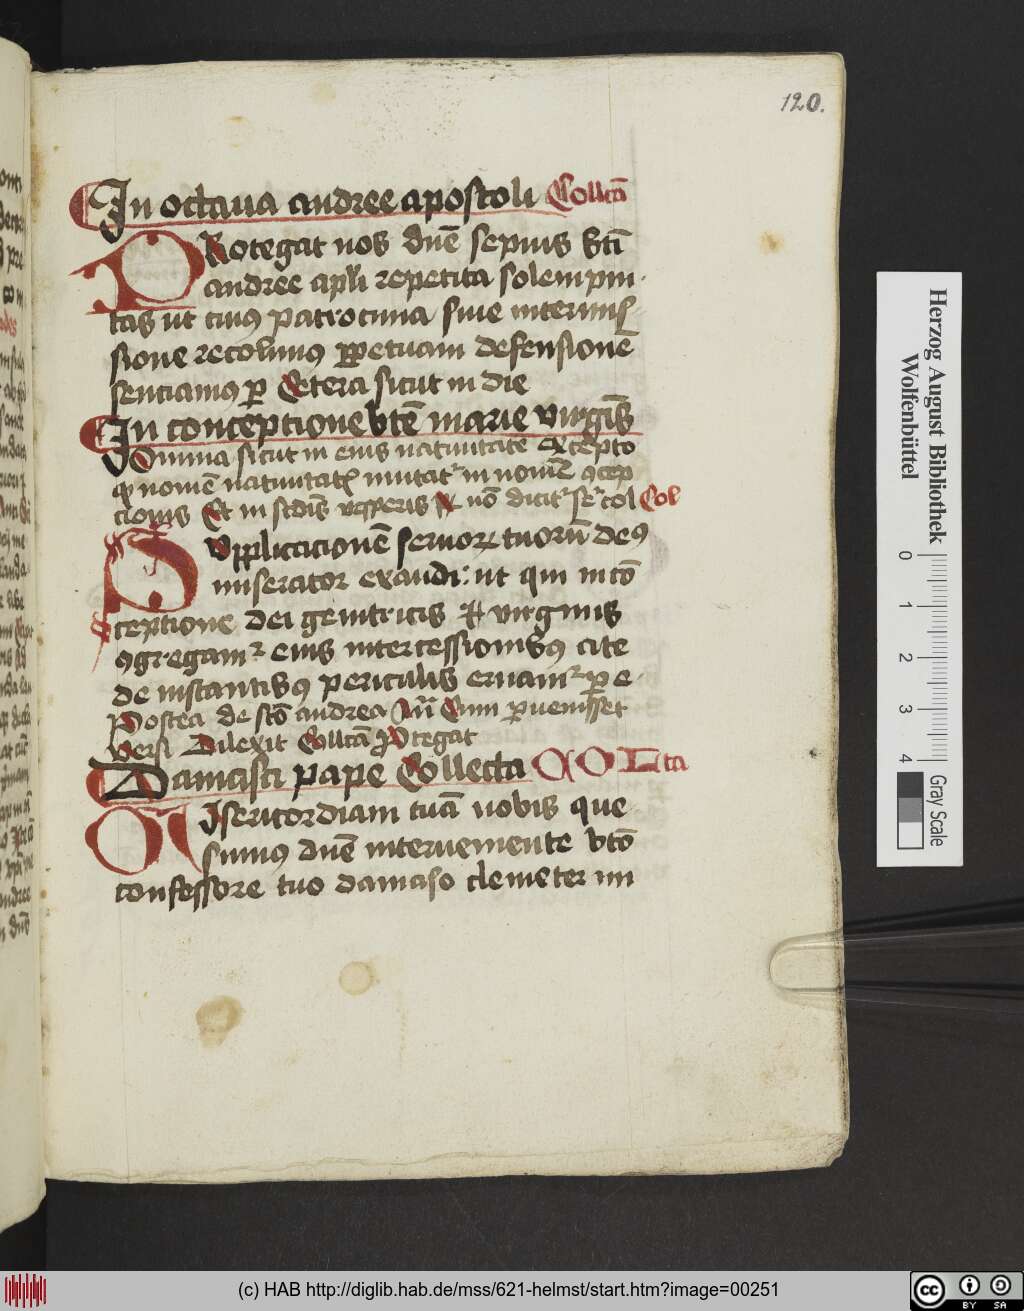 120.
In octaua andree apostoli Collcā
PRotegat nos dn̄e sepius bt̄i
andree apl̄i repetita solempni
tas ut cuius patrocinia sine intermis
sione recolimꝰ ꝑpetuam defensionē
senciamꝰ ꝑ Cetera sicut in die
In conceptione bt̄e marie virgīs
Omnia sicut in eius natiuitate Excepto
nomē natiuitatꝭ mutat᷑ in nomē ꝯcep
cionis Et in scdīs vesperis nō dicit᷑ col Col
Supplicacionē seruoꝝ tuorū deꝰ
miserator exaudi: ut qui in cō
ceptione dei genitricis et virginis
ꝯgregam᷑ eius intercessionibꝰ a te
de instantibꝰ periculis eruam᷑ ꝑ e
Postea de scō andrea Añ Cum ꝑuenisset
versꝰ Dilexit Collcā Ptegat
Damasci pape Collecta COLcta
MIsericordiam tuā nobis que
sumꝰ dn̄e interueniente bt̄o
confessore tuo damaso clemeter im
Herzog August Bibliothek
Wolfenbüttel
0
1
2
3
4
Gray Scale
(c) HAB http://diglib.hab.de/mss/621-helmst/start.htm?image=00251
cc
BY SA